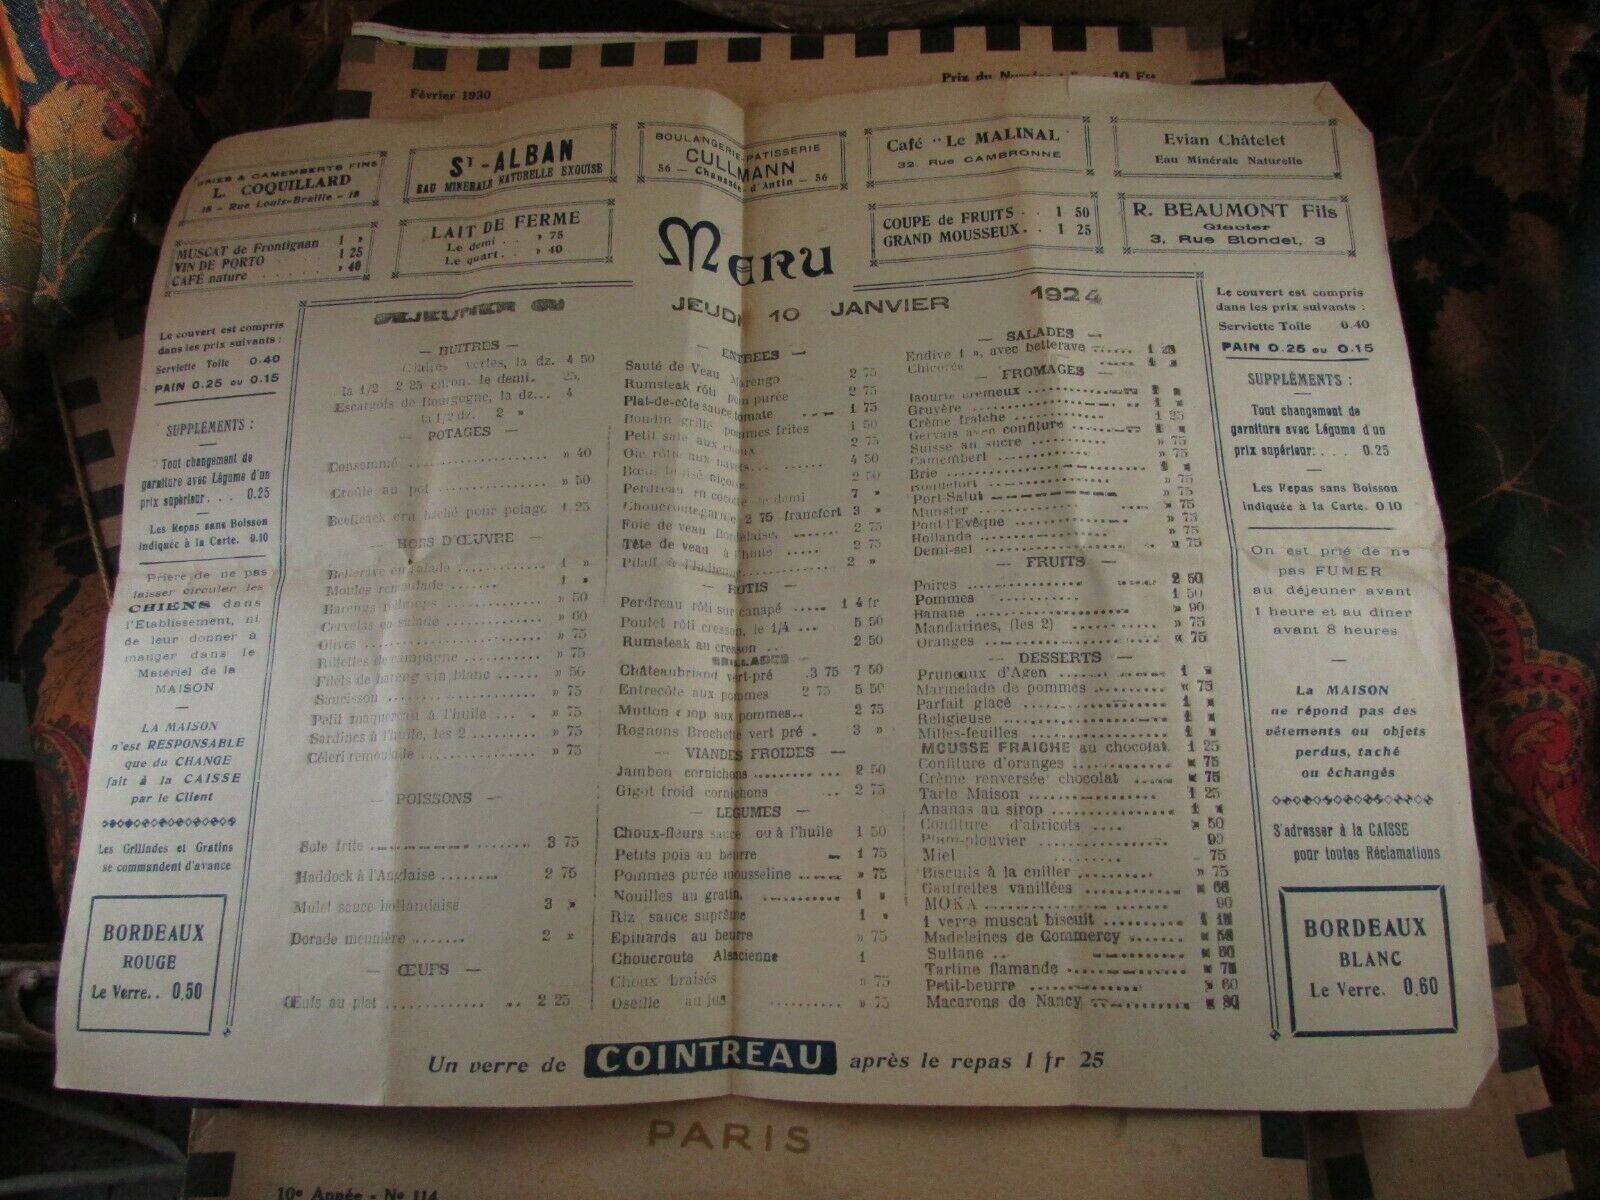 Février 1930
Prix du Numéro : 10 Frs
BRIES & CAMEMBERTS FINS
L. COQUILLARD
18 - Rue Louis-Braille - 18
ST-ALBAN
EAU MINERALE NATURELLE EXQUISE
BOULANGERIE-PATISSERIE
CULLMANN
56 — Chaussée-d'Antin — 56
Café "Le MALINAL
32, Rue CAMBRONNE
Evian Châtelet
Eau Minérale Naturelle
MUSCAT de Frontignan 1 »
VIN DE PORTO 1 25
CAFÉ nature » 40
LAIT DE FERME
Le demi . . » 75
Le quart. . » 40
MENU
COUPE de FRUITS . . 1 50
GRAND MOUSSEUX. . 1 25
R. BEAUMONT Fils
Glacier
3, Rue Blondel, 3
DEJEUNER JEUDI 10 JANVIER 1924
Le couvert est compris
dans les prix suivants :
Serviette Toile 0.40
PAIN 0.25 ou 0.15
SUPPLÉMENTS :
Tout changement de
garniture avec Légume d'un
prix supérieur. . . 0.25
Les Repas sans Boisson
indiquée à la Carte. 0.10
Prière de ne pas
laisser circuler les
CHIENS dans
l'Etablissement, ni
de leur donner à
manger dans le
Matériel de la
MAISON
LA MAISON
n'est RESPONSABLE
que du CHANGE
fait à la CAISSE
par le Client
Les Grillades et Gratins
se commandent d'avance
BORDEAUX
ROUGE
Le Verre. . 0,50
— HUITRES —
Claires vertes, la dz. 4 50
la 1/2 2 25 citron, le demi. 25,
Escargots de Bourgogne, la dz... 4
la 1/2 dz. 2 »
— POTAGES —
Consommé » 40
Croûte au pot » 50
Beefteack cru haché pour potage 1 25
— HORS D'ŒUVRE —
Betterave en salade 1 »
Moules remoulade 1 »
Harengs rollmops » 50
Cervelas en salade » 60
Olives » 75
Rillettes de campagne » 75
Filets de hareng vin blanc » 50
Saucisson » 75
Petit maquereau à l'huile » 75
Sardines à l'huile, les 2 » 75
Céleri remoulade » 75
— POISSONS —
Sole frite 3 75
Haddock à l'Anglaise 2 75
Mulet sauce hollandaise 3 »
Dorade meunière 2 »
— ŒUFS —
Œufs au plat 2 25
— ENTREES —
Sauté de Veau Marengo 2 75
Rumsteak rôti pom purée 2 75
Plat-de-côte sauce tomate 1 75
Boudin grillé pommes frites 1 50
Petit salé aux choux 2 75
Oie rôtie aux navets 4 50
Bœuf braisé niçoise 2 50
Perdreau en cocotte le demi 7 »
Choucroute garnie 2 75 francfort 3 »
Foie de veau Bordelaise 2 75
Tête de veau à l'huile 2 75
Pilaff à l'Indienne 2 »
— ROTIS —
Perdreau rôti sur canapé ..... 1 4 fr
Poulet rôti cresson, le 1/4 ... 5 50
Rumsteak au cresson .. 2 50
— GRILLADES —
Châteaubriand vert-pré .3 75 7 50
Entrecôte aux pommes 2 75 5 50
Mutton chop aux pommes.. 2 75
Rognons Brochette vert pré . 3 »
— VIANDES FROIDES —
Jambon cornichons 2 50
Gigot froid cornichons 2 75
— LEGUMES —
Choux-fleurs sauce ou à l'huile 1 50
Petits pois au beurre 1 75
Pommes purée mousseline » 75
Nouilles au gratin. 1 »
Riz sauce suprême 1 »
Epinards au beurre » 75
Choucroute Alsacienne 1
Choux braisés » 75
Oseille au jus » 75
— SALADES —
Endive 1 », avec betterave 1 25
Chicorée 1 »
— FROMAGES —
Iaourte crémeux 1 »
Gruyère 1 »
Crème fraîche 1 25
Gervais avec confiture 1 »
Suisse au sucre » 75
Camembert » 75
Brie 1 »
Roquefort » 75
Port-Salut » 75
Munster » 75
Pont-l'Evêque » 75
Hollande » 75
Demi-sel » 75
— FRUITS —
Poires 2 50
Pommes 1 50
Banane » 90
Mandarines, (les 2) » 75
Oranges « 75
— DESSERTS —
Pruneaux d'Agen 1 »
Marmelade de pommes « 75
Parfait glacé 1 »
Religieuse 1 »
Milles-feuilles 1 »
MOUSSE FRAICHE au chocolat 1 25
Confiture d'oranges » 75
Crème renversée chocolat » 75
Tarte Maison 1 25
Ananas au sirop 1 »
Confiture d'abricots » 50
Plum-plouvier 90
Miel 75
Biscuits à la cuiller » 75
Gaufrettes vanillées » 60
MOKA 90
1 verre muscat biscuit
Madeleines de Commercy
Sultane
Tartine flamande » 75
Petit-beurre » 60
Macarons de Nancy
Le couvert est compris
dans les prix suivants :
Serviette Toile 0.40
PAIN 0.25 ou 0.15
SUPPLÉMENTS :
Tout changement de
garniture avec Légume d'un
prix supérieur: . . . 0.25
Les Repas sans Boisson
indiquée à la Carte. 0.10
On est prié de ne
pas FUMER
au déjeuner avant
1 heure et au dîner
avant 8 heures
La MAISON
ne répond pas des
vêtements ou objets
perdus, taché
ou échangés
S'adresser à la CAISSE
pour toutes Réclamations
BORDEAUX
BLANC
Le Verre. 0.60
Un verre de COINTREAU après le repas 1 fr 25
PARIS
10e Année - No 114